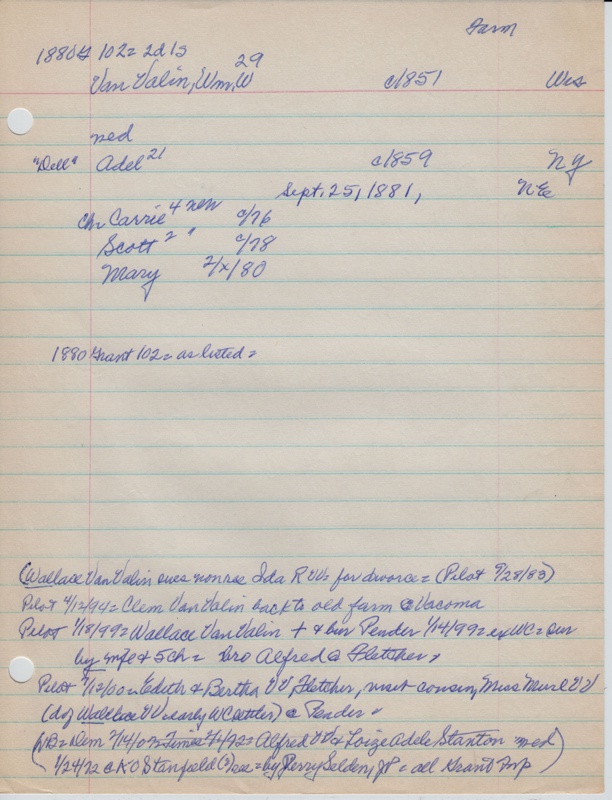 Farm
1880 G 102 = 2d 1s
Van Valin, Wm. W 29 c/1851 Wis
med
"Dell" Adel 21 c/1859 NY
Sept. 25, 1881, NE
Ch. Carrie 4 new c/76
Scott 2 " c/78
Mary 2/x/80
1880 Grant 102 = as listed =
(Wallace Van Valin sues nonres Ida R VV for divorce = (Pilot 9/28/83)
Pilot 4/12/94 = Clem Van Valin back to old farm @ Vacoma
Pilot 1/18/99 = Wallace Van Valin + & bur Pender 1/14/99 = ex WC = sur
by wife & 5 ch = bro Alfred @ Fletcher,
Pilot 7/12/00 = Edith & Bertha VV, Fletcher, visit cousin, Miss Meurl VV
(d of Wallace VV early WC settler) @ Pender =
(NB = Dem Alfred VV & Loize Adele Stanton med
1/24/72 @ K O Stanfield (?) = by Perry Selden, JP = all Grant Twp)